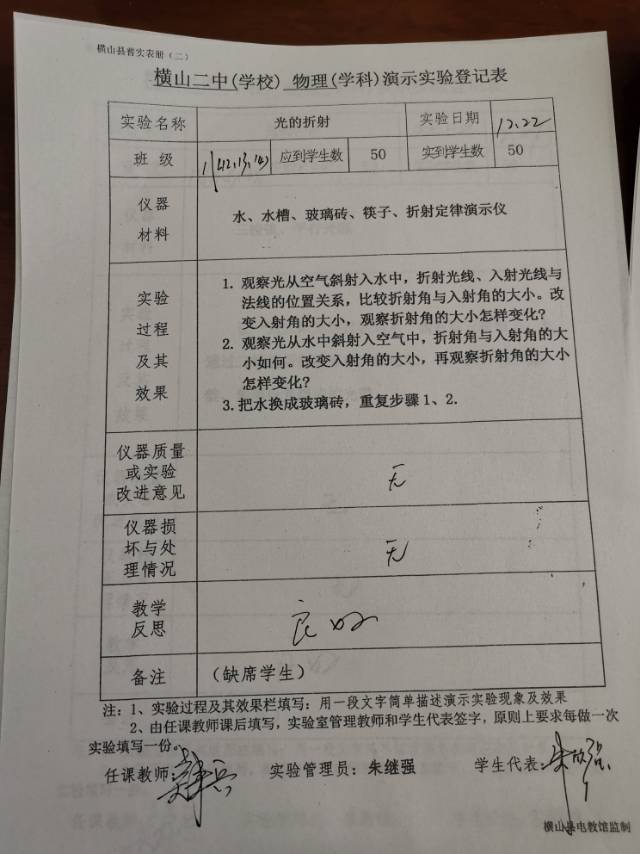 横山县普实表册（二）
横山二中(学校) 物理(学科)演示实验登记表
实验名称 光的折射 实验日期 12.22
班 级 应到学生数 50 实到学生数 50
仪器
材料
水、水槽、玻璃砖、筷子、折射定律演示仪
实验
过程
及其
效果
1. 观察光从空气斜射入水中，折射光线、入射光线与
法线的位置关系，比较折射角与入射角的大小。改
变入射角的大小，观察折射角的大小怎样变化？
2. 观察光从水中斜射入空气中，折射角与入射角的大
小如何。改变入射角的大小，再观察折射角的大小
怎样变化？
3.把水换成玻璃砖，重复步骤1、2.
仪器质量
或实验
改进意见
无
仪器损
坏与处
理情况
无
教学
反思
良好
备注 （缺席学生）
注：1、实验过程及其效果栏填写：用一段文字简单描述演示实验现象及效果
2、由任课教师课后填写，实验室管理教师和学生代表签字，原则上要求每做一次
实验填写一份。
任课教师： 实验管理员：朱继强 学生代表：
横山县电教馆监制